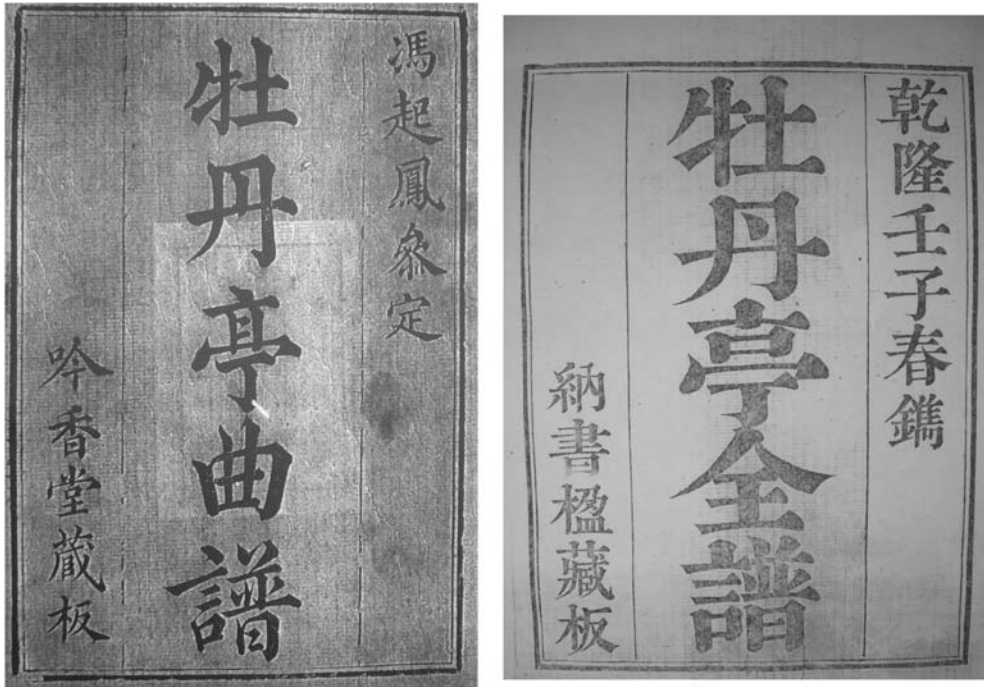 馮起鳳叅定
牡丹亭曲譜
吟香堂蔵板
乾隆壬子春鐫
牡丹亭全譜
納書楹藏板